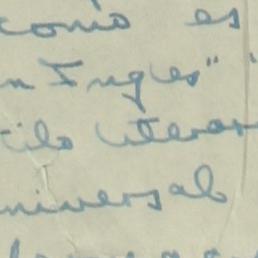 como es
n Ingles"
tilo literar
niversal